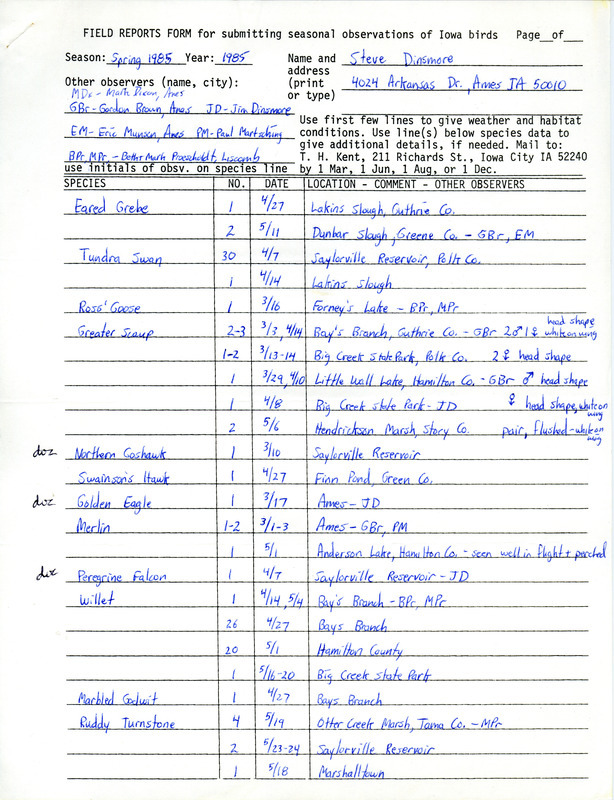 FIELD REPORTS FORM for submitting seasonal observations of Iowa birds Page__of___
Season: Spring 1985 Year: 1985 Name and Steve Dinsmore
address
Other observers (name, city): (print 4024 Arkansas Dr., Ames IA 50010
MDx - Mark Dixon, Ames or type)
GBr - Gordon Brown, Ames JD - Jim Dinsmore
EM - Eric Munson, Ames PM - Paul Martsching
BPr, MPr - Beth & Mark Proescholdt, Liscomb
use initials of obsv. on species line
Use first few lines to give weather and habitat
conditions. Use line(s) below species data to
give additional details, if needed. Mail to:
T. H. Kent, 211 Richards St., Iowa City IA 52240
by 1 Mar, 1 Jun, 1 Aug, or 1 Dec.
SPECIES NO. DATE LOCATION - COMMENT - OTHER OBSERVERS
Eared Grebe 1 4/27 Lakins Slough, Guthrie Co.
2 5/11 Dunbar Slough, Greene Co. - GBr, EM
Tundra Swan 30 4/7 Saylorville Reservoir, Polk Co.
1 4/14 Lakins Slough
Ross' Goose 1 3/16 Forney's Lake - BPr, MPr
Greater Scaup 2-3 3/3, 4/14 Bay's Branch, Guthrie Co. - GBr 2♂ 1♀ head shape white on wing
1-2 3/13-14 Big Creek State Park, Polk Co. 2 ♀ head shape
1 3/29, 4/10 Little Wall Lake, Hamilton Co. - GBr ♂ head shape
1 4/8 Big Creek State Park - JD ♀ head shape, white on wing
2 5/6 Hendrickson Marsh, Story Co. pair, flushed - white on wing
doc Northern Goshawk 1 3/10 Saylorville Reservoir
Swainson's Hawk 1 4/27 Finn Pond, Green Co.
doc Golden Eagle 1 3/17 Ames - JD
Merlin 1-2 3/1-3 Ames - GBr, PM
1 5/1 Anderson Lake, Hamilton Co. - seen well in flight + perched
doc Peregrine Falcon 1 4/7 Saylorville Reservoir - JD
Willet 1 4/14, 5/4 Bay's Branch - BPr, MPr
26 4/27 Bays Branch
20 5/1 Hamilton County
1 5/16-20 Big Creek State Park
Marbled Godwit 1 4/27 Bays Branch
Ruddy Turnstone 4 5/19 Otter Creek Marsh, Tama Co. - MPr
2 5/23-24 Saylorville Reservoir
1 5/18 Marshalltown